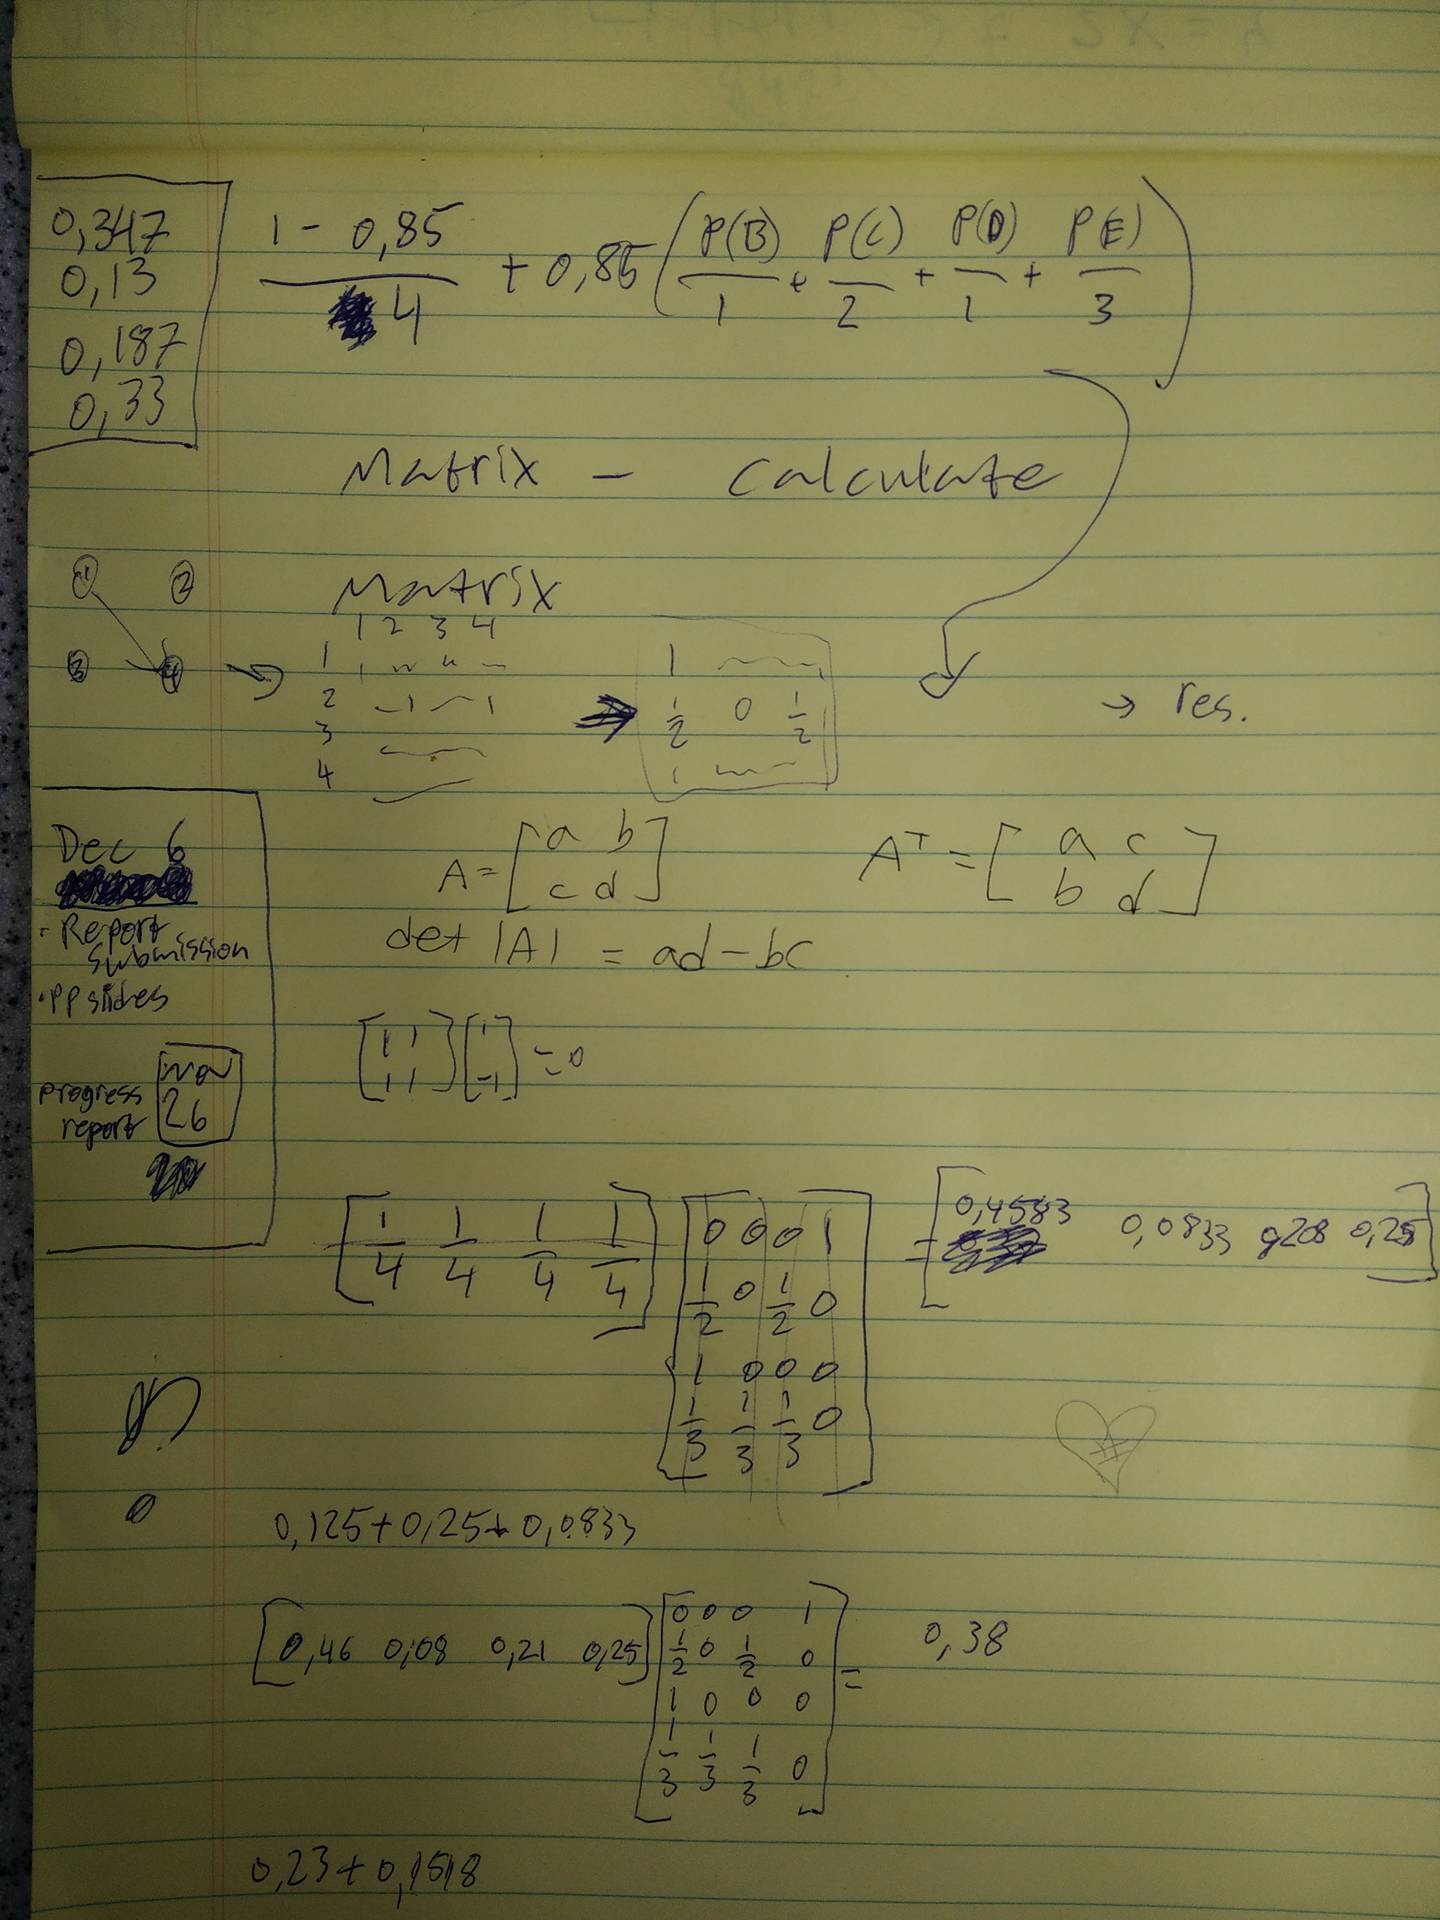 0,347
0,13
0,187
0,33
1 - 0,85 / 4 + 0,85 ( P(B)/1 + P(C)/2 + P(D)/1 + P(E)/3 )
Matrix - calculate
1 2
3 4
Matrix
1 2 3 4
1
2
3
4
1
1/2 0 1/2
1
→ res.
Dec 6
· Report submission
· PP slides
progress report
Nov 26
A = [ a b
c d ]
A^T = [ a c
b d ]
det |A| = ad - bc
[ 1 1
1 1 ] [ 1
-1 ] = 0
[ 1/4 1/4 1/4 1/4 ] [ 0 0 0 1
1/2 0 1/2 0
1 0 0 0
1/3 1/3 1/3 0 ] = [ 0,4583 0,0833 0,208 0,25 ]
0,125 + 0,25 + 0,0833
[ 0,46 0,08 0,21 0,25 ] [ 0 0 0 1
1/2 0 1/2 0
1 0 0 0
1/3 1/3 1/3 0 ] = 0,38
0,23 + 0,1518